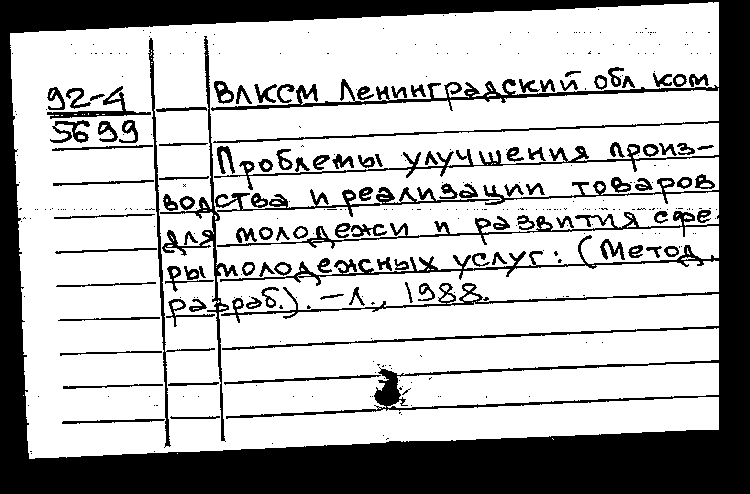 92-4
5699
ВЛКСМ. Ленинградский обл. ком.
Проблемы улучшения произ-
водства и реализации товаров
для молодежи и развития сфе-
ры молодежных услуг: (Метод.
разраб.). - Л., 1988.